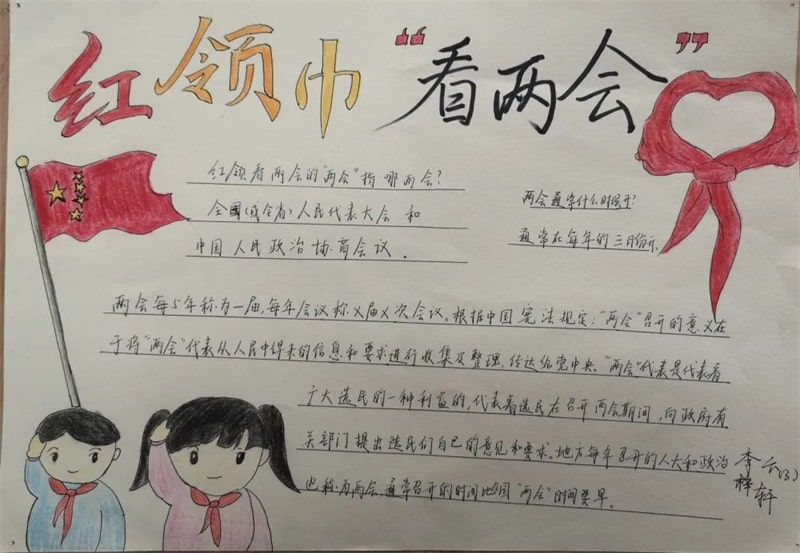 红领巾“看两会”
红领看两会的“两会”指哪两会?
全国(或全省)人民代表大会 和
中国人民政治协商会议.
两会通常什么时候召开?
通常在每年的三月份示
两会每5年称为一届,每年会议称X届X次会议,根据中国宪法规定:“两会”召开的意义在
于将“两会”代表从人民中得来的信息和要求进行收集及整理,传达给党中央。“两会”代表是代表着
广大选民的一种利益的,代表着选民在召开两会期间,向政府有
关部门提出选民们自己的意见和要求。地方每年召开的人大和政治
也称为两会,通常召开的时间比全国“两会”时间要早。
李梓轩